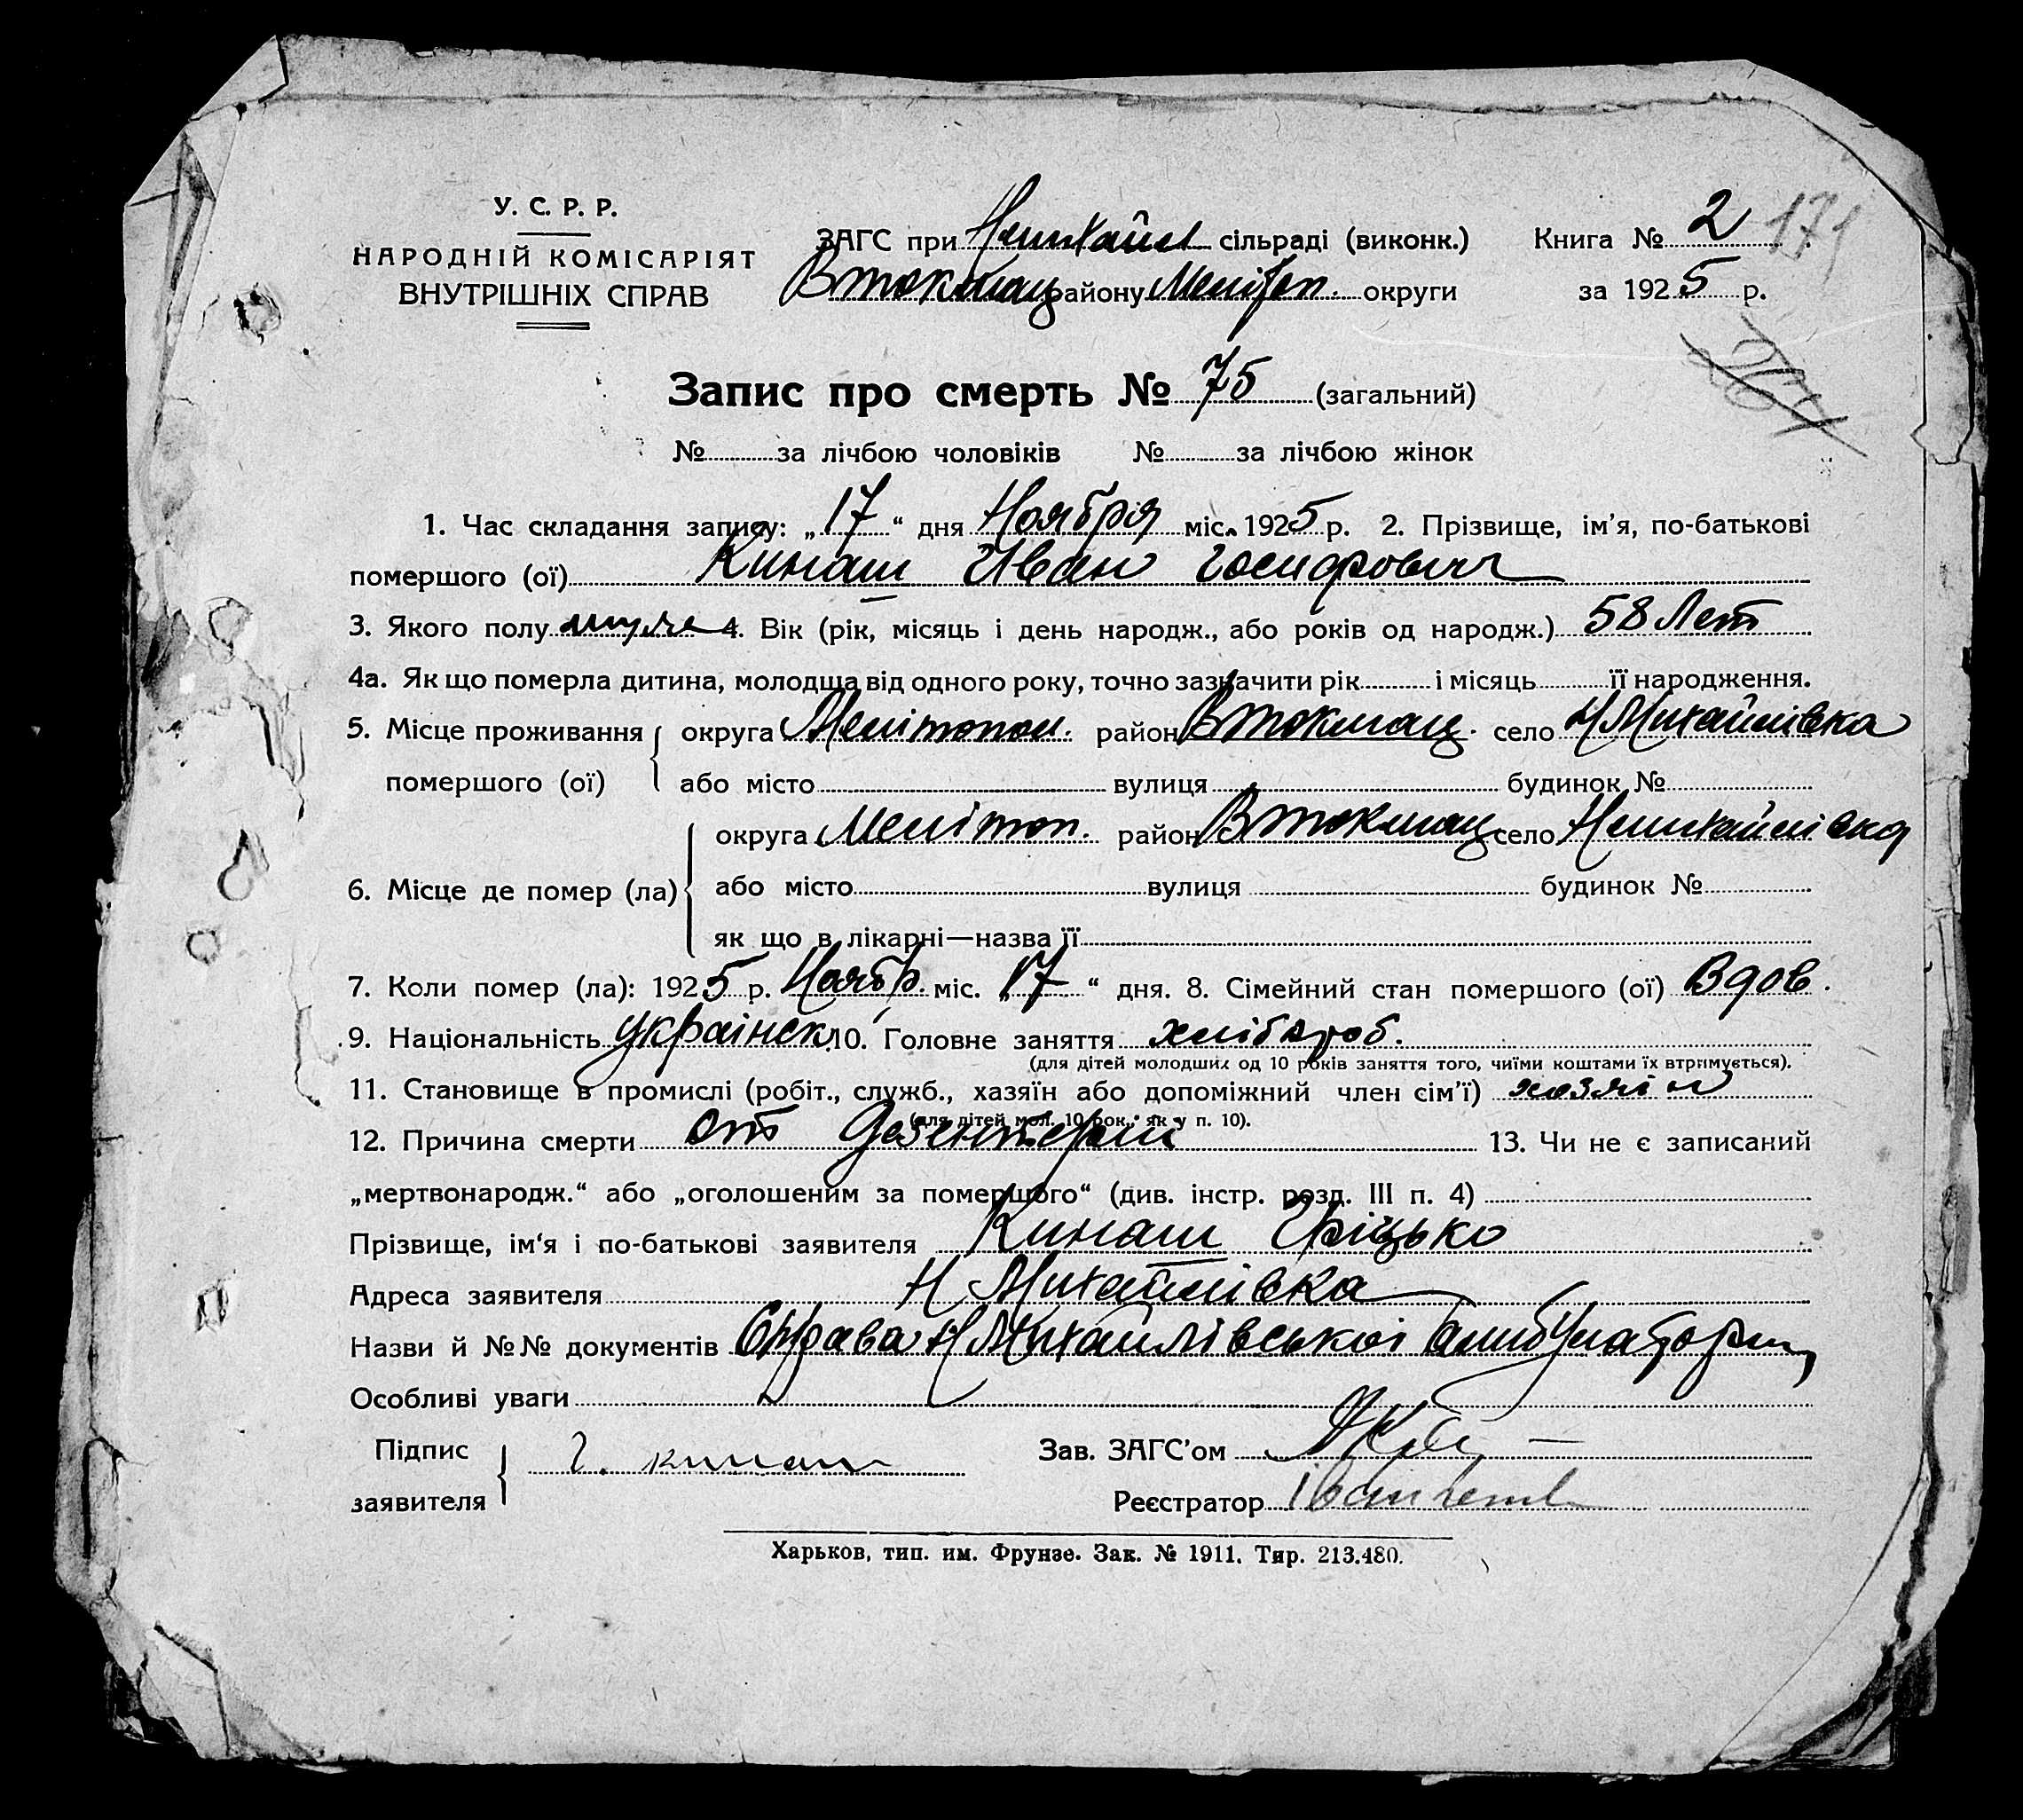 У. С. Р. Р.
НАРОДНІЙ КОМІСАРІЯТ
ВНУТРІШНІХ СПРАВ
ЗАГС при Нмихайл сільраді (виконк.)
Втокмац району Меліт. округи
Книга № 2 171
за 1925 р.
Запис про смерть № 75 (загальний)
№ за лічбою чоловіків № за лічбою жінок
1. Час складання запису: „17“ дня Ноября міс. 1925 р. 2. Прізвище, ім’я, по-батькові
помершого (ої) Кинаш Иван Иосифович
3. Якого полу муже 4. Вік (рік, місяць і день народж., або років од народж.) 58 Лет
4а. Як що померла дитина, молодща від одного року, точно зазначити рік і місяць її народження.
5. Місце проживання помершого (ої) округа Мелітопол. район Втокмац. село Н Михайлівка
або місто вулиця будинок №
6. Місце де помер (ла) округа Мелітоп. район Втокмац село Нмихайлівка
або місто вулиця будинок №
як що в лікарні—назва її
7. Коли помер (ла): 1925 р. Ноябр. міс. „17“ дня. 8. Сімейний стан помершого (ої) Вдов.
9. Національність українск. 10. Головне заняття хлібороб.
(для дітей молодших од 10 років заняття того, чиїми коштами їх втримується).
11. Становище в промислі (робіт., служб., хазяїн або допоміжний член сім’ї) хозяін
(для дітей мол. 10 рок., як у п. 10).
12. Причина смерти от дезентерии 13. Чи не є записаний
„мертвонародж.“ або „оголошеним за помершого“ (див. інстр. розд. III п. 4)
Прізвище, ім‘я і по-батькові заявителя Кинаш Гріцько
Адреса заявителя Н Михайлівка
Назви й №№ документів Справа Н Михайлівської амбулатории
Особливі уваги
Підпис заявителя Г. кинаш
Зав. ЗАГС’ом
Реєстратор
Харьков, тип. им. Фрунзе. Зак. № 1911. Тир. 213.480.